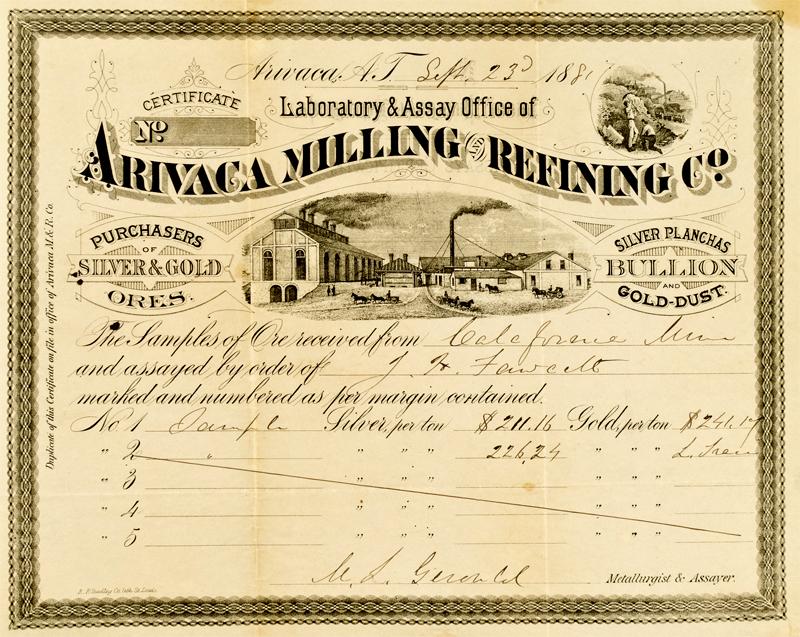 Arivaca, A.T. Sept. 23d 1881
CERTIFICATE
No.
Laboratory & Assay Office of
ARIVACA MILLING AND REFINING CO.
PURCHASERS
OF
SILVER & GOLD
ORES.
SILVER PLANCHAS
BULLION
AND
GOLD-DUST.
The Samples of Ore received from California Mine
and assayed by order of J. H. Fawcett
marked and numbered as per margin contained.
No. 1 Sample Silver, per ton $ 211.16 Gold, per ton $ 241.17
" 2 " " " " 226.24 " " "
" 3 " " " " " "
" 4 " " " " " "
" 5 " " " " " "
M. L.
Metallurgist & Assayer.
Duplicate of this Certificate on file in office of Arivaca M. & R. Co.
Co. Lith. St. Louis.